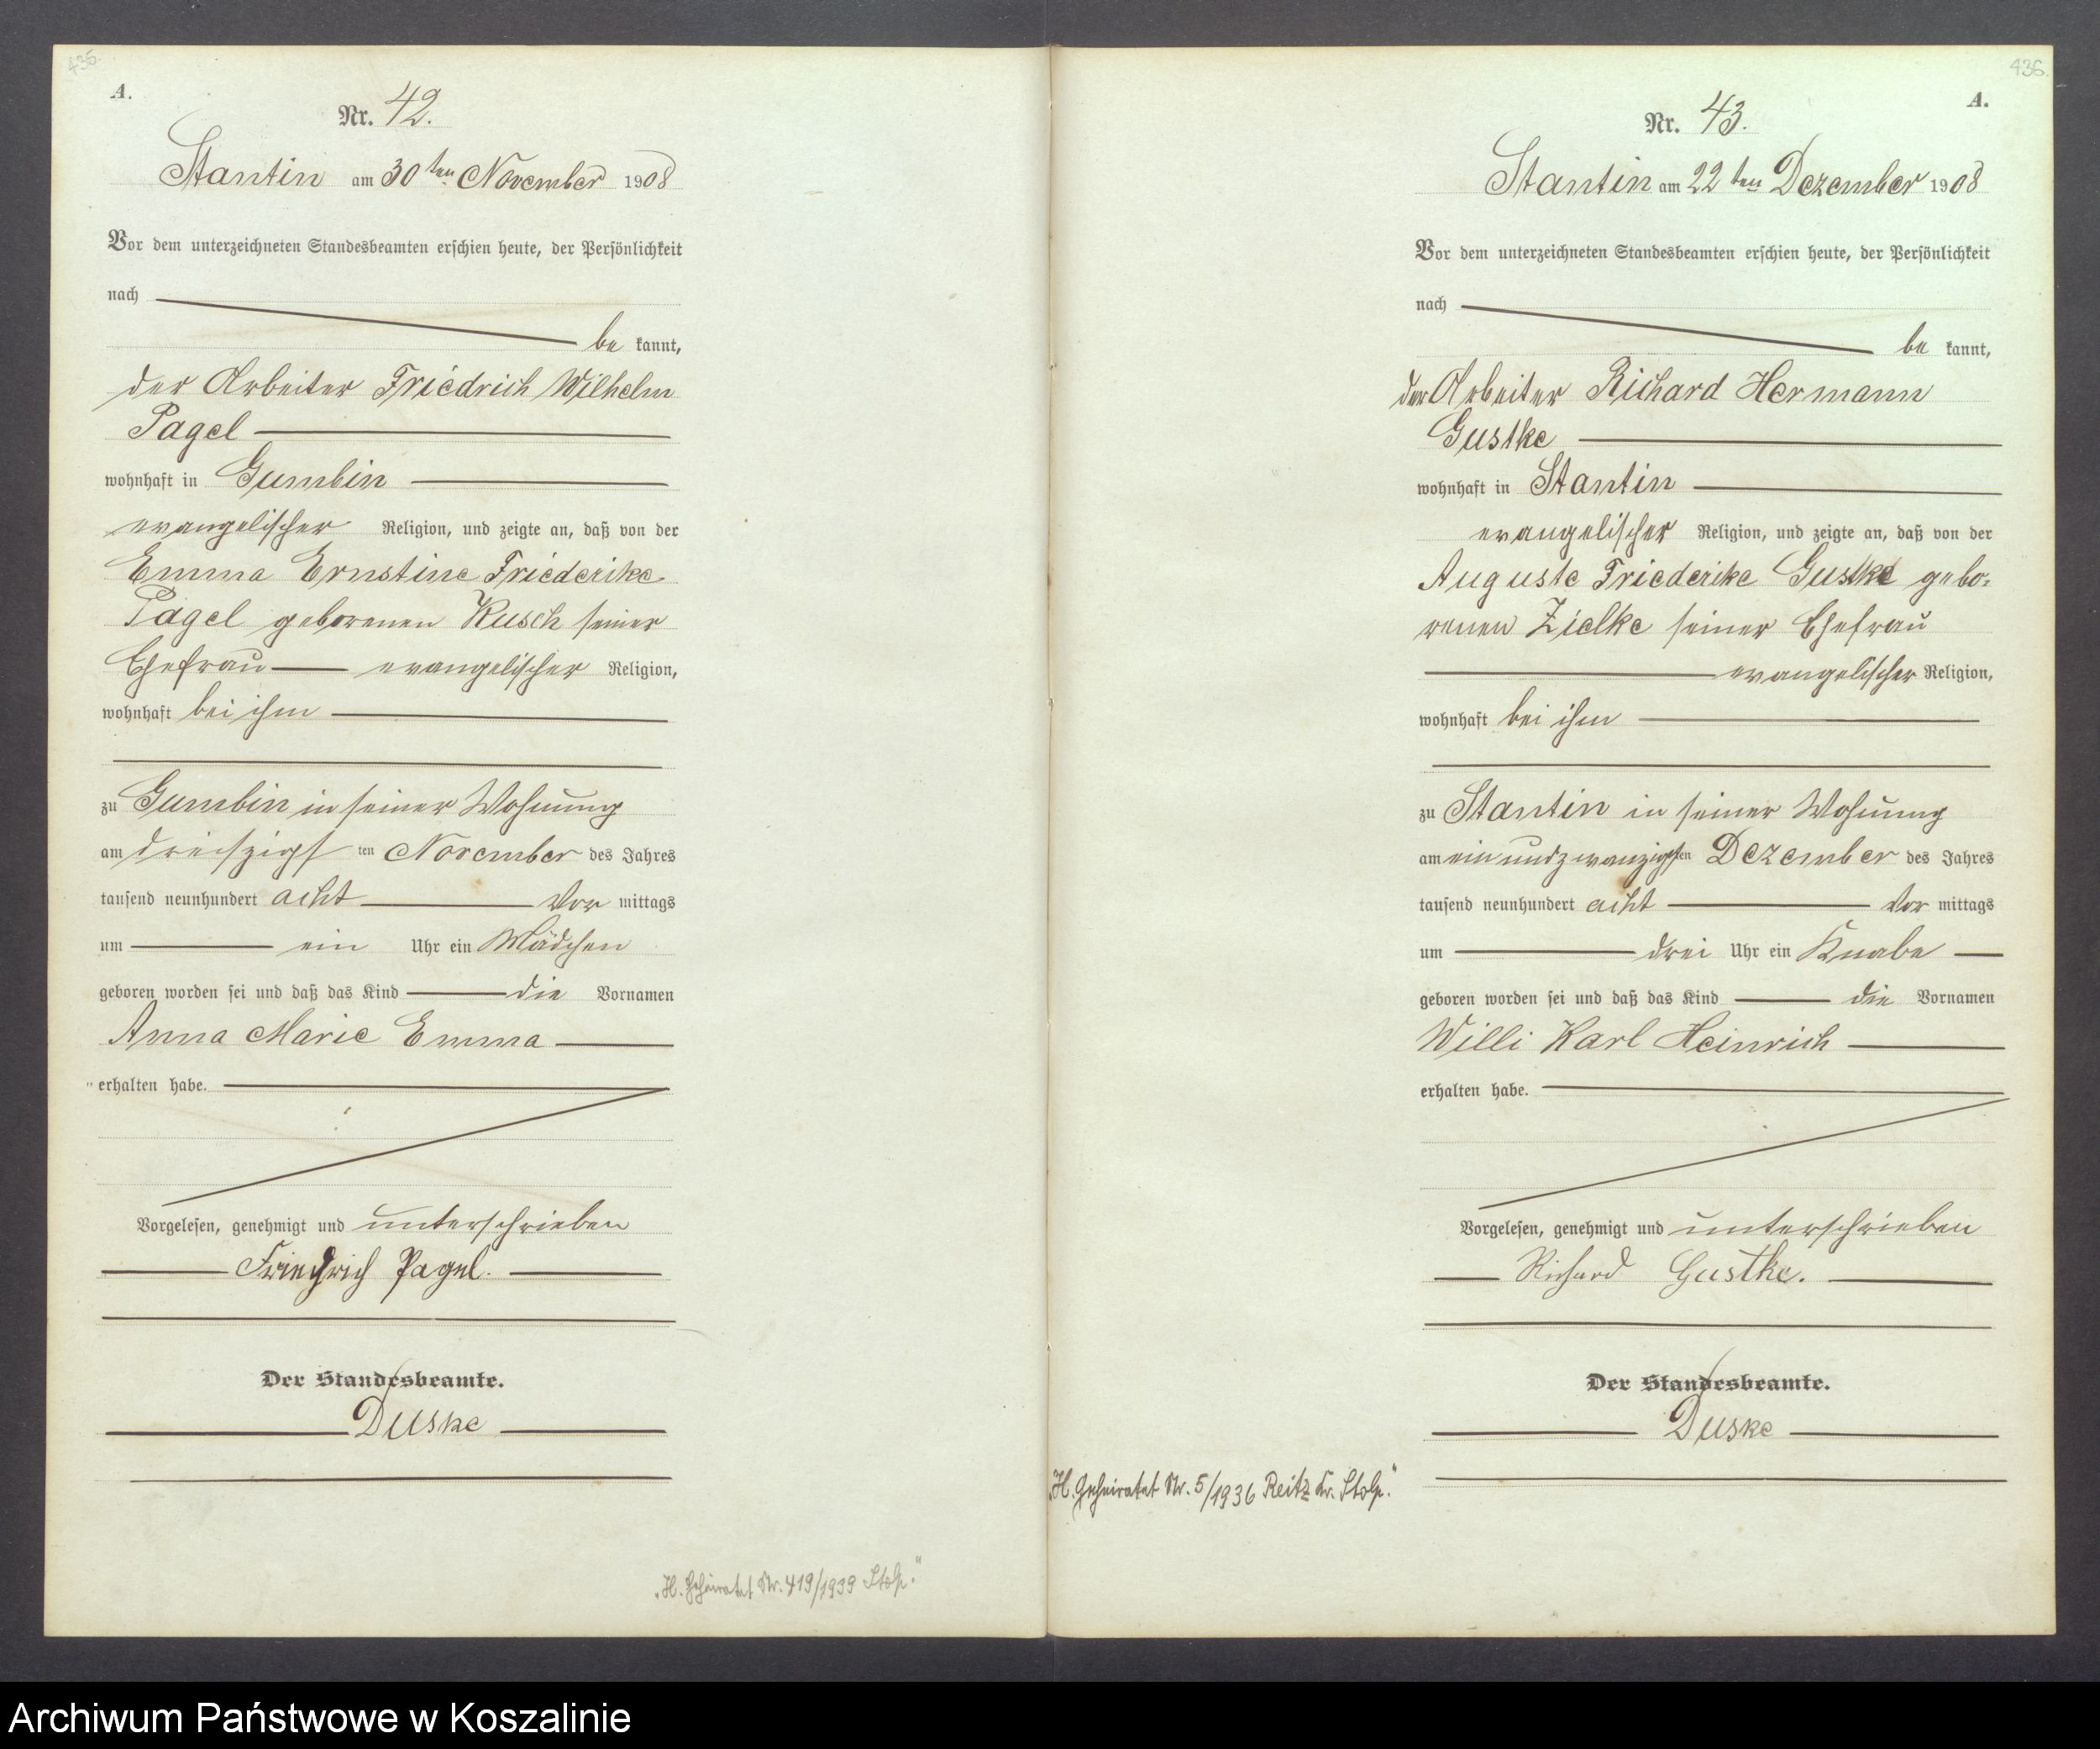 435.
A.
Nr. 42.
Stantin am 30ten November 1908
Vor dem unterzeichneten Standesbeamten erschien heute, der Persönlichkeit
nach
be kannt,
der Arbeiter Friedrich Wilhelm
Pagel
wohnhaft in Gumbin
evangelischer Religion, und zeigte an, daß von der
Emma Ernstine Friederike
Pagel geborenen Kusch seiner
Ehefrau evangelischer Religion,
wohnhaft bei ihm
zu Gumbin in seiner Wohnung
am dreiszigst ten November des Jahres
tausend neunhundert acht Vor mittags
um ein Uhr ein Mädchen
geboren worden sei und daß das Kind die Vornamen
Anna Marie Emma
erhalten habe.
Vorgelesen, genehmigt und unterschrieben
Friedrich Pagel.
Der Standesbeamte.
Duske
"H. Geheiratet Nr. 419/1939 Stolp."
436.
A.
Nr. 43.
Stantin am 22ten Dezember 1908
Vor dem unterzeichneten Standesbeamten erschien heute, der Persönlichkeit
nach
be kannt,
der Arbeiter Richard Hermann
Gustke
wohnhaft in Stantin
evangelischer Religion, und zeigte an, daß von der
Auguste Friederike Gustke gebo-
renen Zielke seiner Ehefrau
evangelischer Religion,
wohnhaft bei ihm
zu Stantin in seiner Wohnung
am einundzwanzigsten Dezember des Jahres
tausend neunhundert acht Vor mittags
um drei Uhr ein Knabe
geboren worden sei und daß das Kind die Vornamen
Willi Karl Heinrich
erhalten habe.
Vorgelesen, genehmigt und unterschrieben
Richard Gustke.
Der Standesbeamte.
Duske
"H. Geheiratet Nr. 5/1936 Reitz Kr. Stolp."
Archiwum Państwowe w Koszalinie